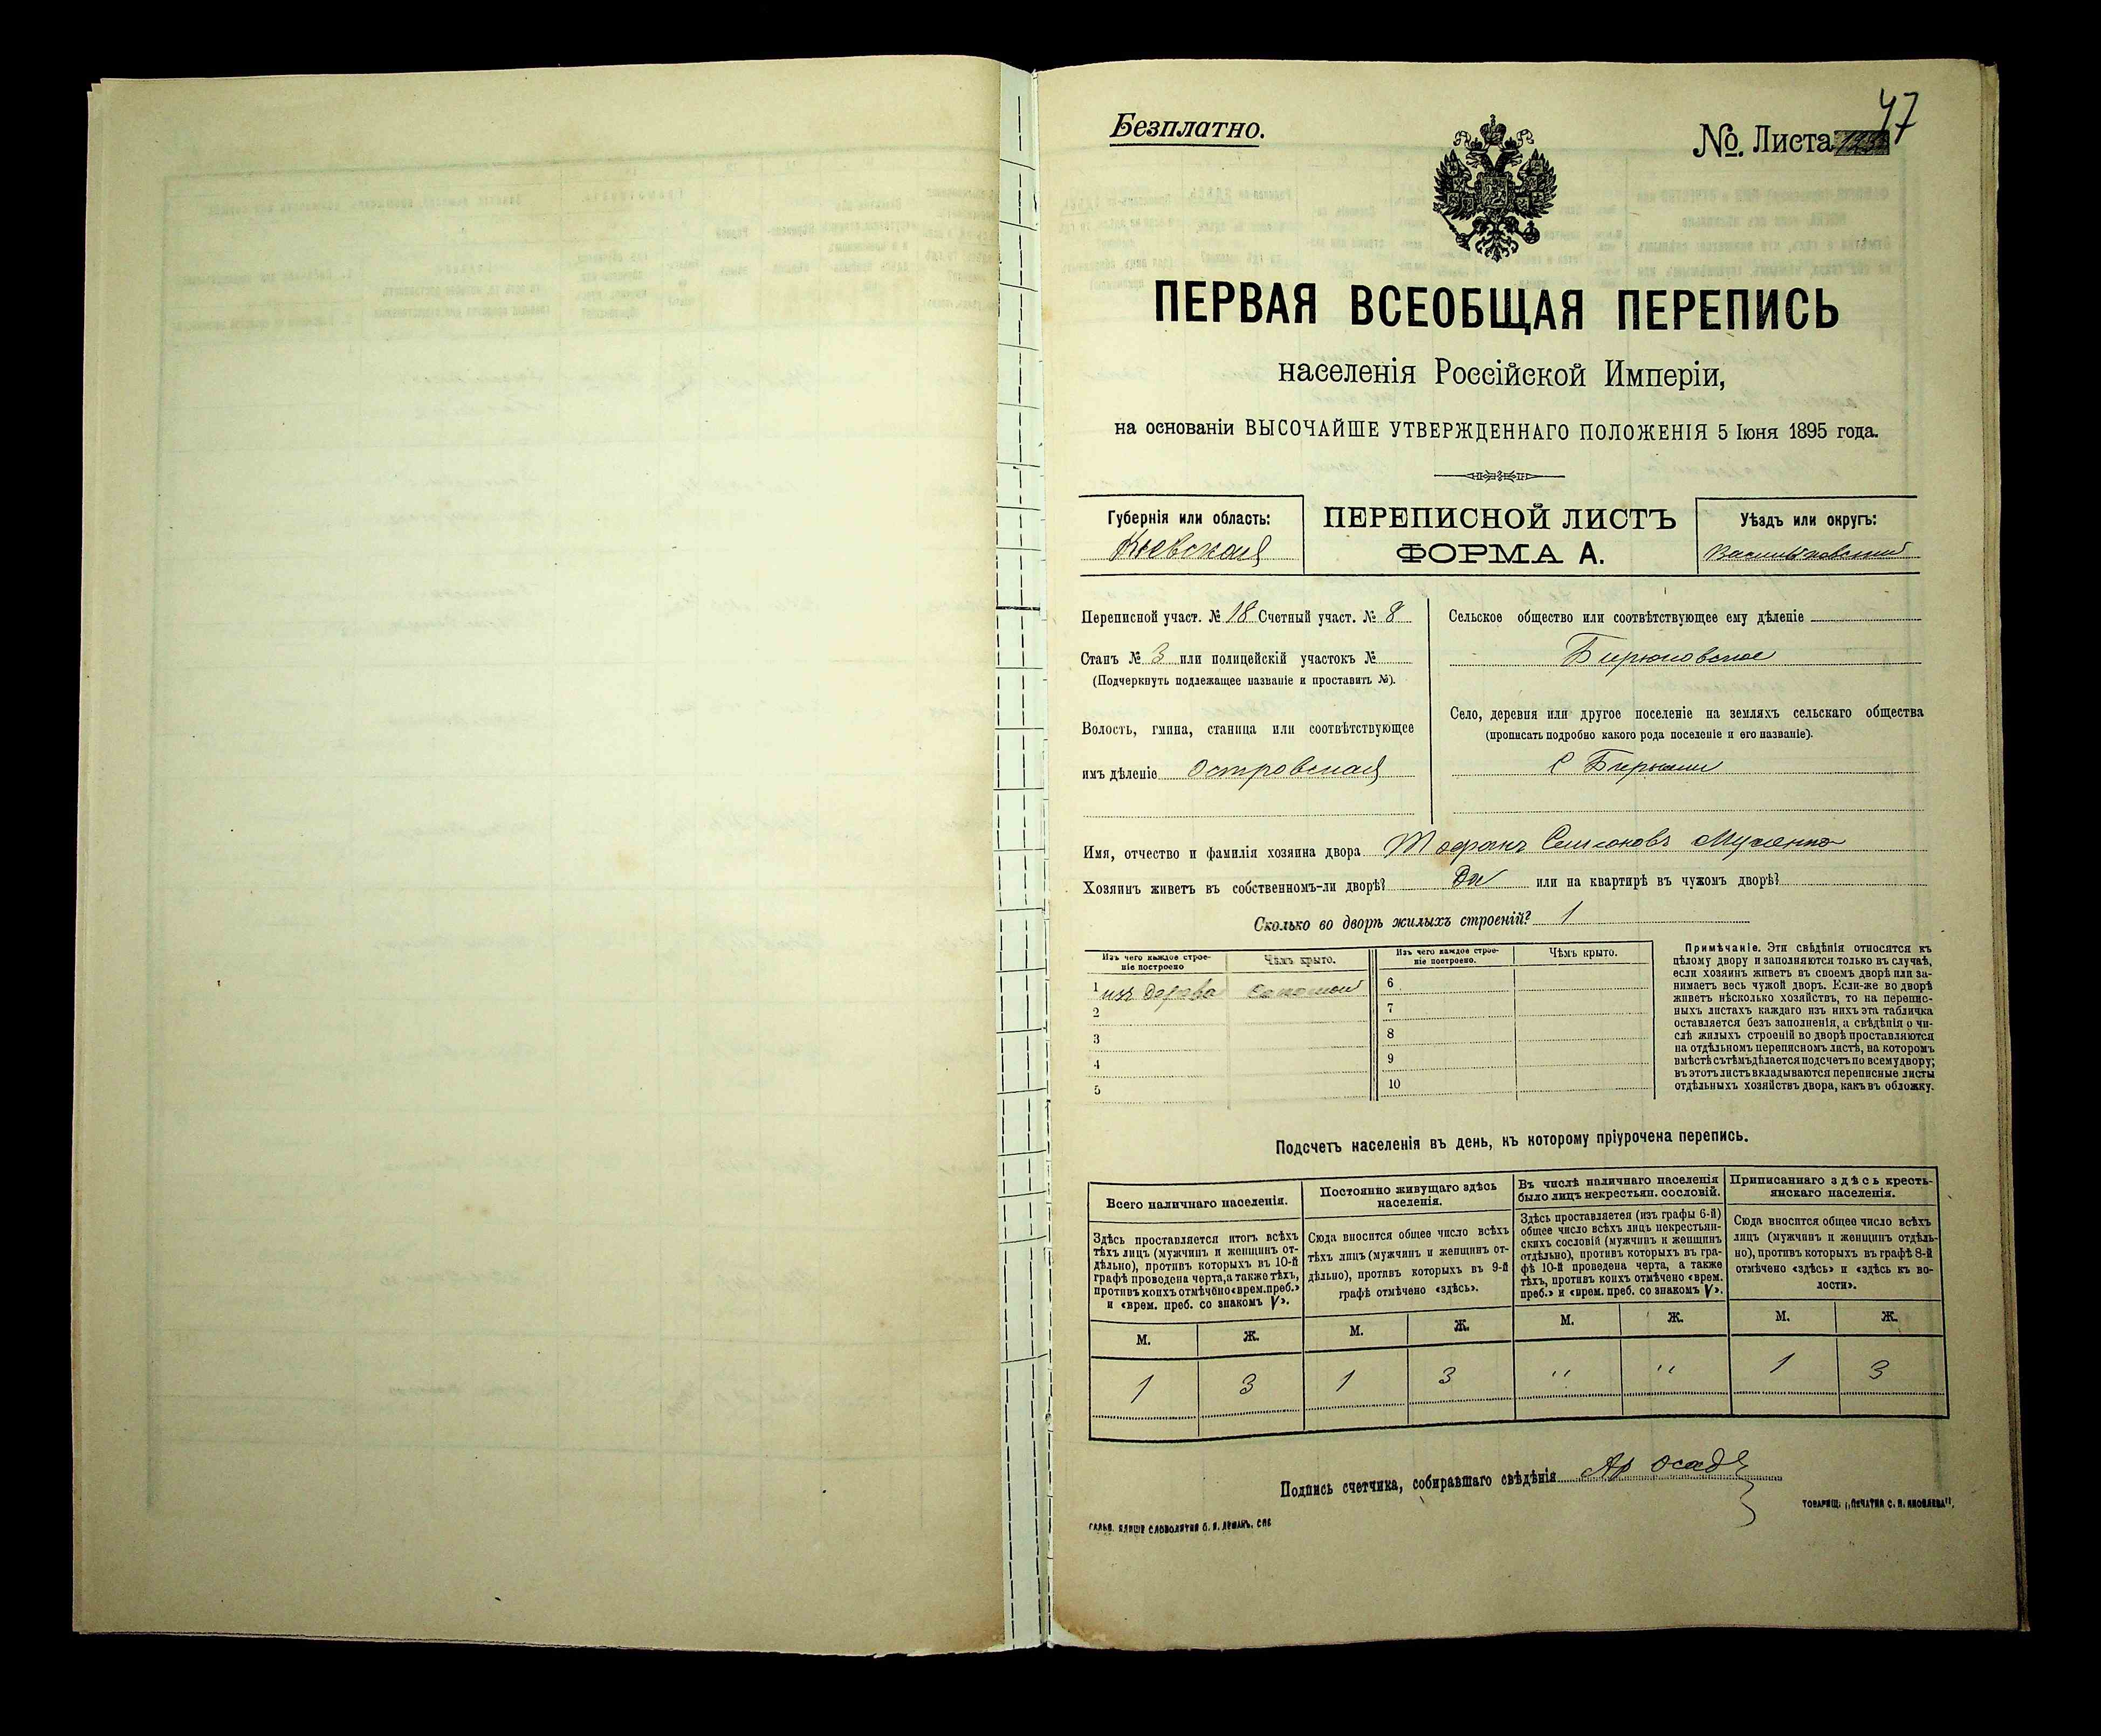 47
Безплатно.
№ Листа
ПЕРВАЯ ВСЕОБЩАЯ ПЕРЕПИСЬ
населенія Россійской Имперіи,
на основаніи ВЫСОЧАЙШЕ УТВЕРЖДЕННАГО ПОЛОЖЕНІЯ 5 Іюня 1895 года.
Губернія или область:
Кіевская
ПЕРЕПИСНОЙ ЛИСТЪ
ФОРМА А.
Уѣздъ или округъ:
Васильковский
Переписной участ. № 18 Счетный участ. № 8
Станъ № 3 или полицейскій участокъ №
(Подчеркнуть подлежащее названіе и проставить №).
Волость, гмина, станица или соотвѣтствующее
имъ дѣленіе Островская
Сельское общество или соотвѣтствующее ему дѣленіе
Бирюковское
Село, деревня или другое поселеніе на земляхъ сельскаго общества
(прописать подробно какого рода поселеніе и его названіе).
С Бирюки
Имя, отчество и фамилія хозяина двора
Хозяинъ живетъ въ собственномъ-ли дворѣ? Да или на квартирѣ въ чужомъ дворѣ?
Сколько во дворѣ жилыхъ строеній? 1
Изъ чего каждое строе-
ніе построено
Чѣмъ крыто.
1 изъ дерева соломой
2
3
4
5
Изъ чего каждое строе-
ніе построено.
Чѣмъ крыто.
6
7
8
9
10
Примѣчаніе. Эти свѣдѣнія относятся къ
цѣлому двору и заполняются только въ случаѣ,
если хозяинъ живетъ въ своемъ дворѣ или за-
нимаетъ весь чужой дворъ. Если-же во дворѣ
живетъ нѣсколько хозяйствъ, то на перепис-
ныхъ листахъ каждаго изъ нихъ эта табличка
оставляется безъ заполненія, а свѣдѣнія о чи-
слѣ жилыхъ строеній во дворѣ проставляются
на отдѣльномъ переписномъ листѣ, на которомъ
вмѣстѣ съ тѣмъ дѣлается подсчетъ по всему двору;
въ этотъ листъ вкладываются переписные листы
отдѣльныхъ хозяйствъ двора, какъ въ обложку.
Подсчетъ населенія въ день, къ которому пріурочена перепись.
Всего наличнаго населенія.
Здѣсь проставляется итогъ всѣхъ
тѣхъ лицъ (мужчинъ и женщинъ от-
дѣльно), противъ которыхъ въ 10-й
графѣ проведена черта, а также тѣхъ,
противъ коихъ отмѣчено «врем. преб.»
и «врем. преб. со знакомъ V».
М. Ж.
1 3
Постоянно живущаго здѣсь
населенія.
Сюда вносится общее число всѣхъ
тѣхъ лицъ (мужчинъ и женщинъ от-
дѣльно), противъ которыхъ въ 9-й
графѣ отмѣчено «здѣсь».
М. Ж.
1 3
Въ числѣ наличнаго населенія
было лицъ некрестьян. сословій.
Здѣсь проставляется (изъ графы 6-й)
общее число всѣхъ лицъ некрестьян-
скихъ сословій (мужчинъ и женщинъ
отдѣльно), противъ которыхъ въ гра-
фѣ 10-й проведена черта, а также
тѣхъ, противъ коихъ отмѣчено «врем.
преб.» и «врем. преб. со знакомъ V».
М. Ж.
" "
Приписаннаго здѣсь кресть-
янскаго населенія.
Сюда вносится общее число всѣхъ
лицъ (мужчинъ и женщинъ отдѣль-
но), противъ которыхъ въ графѣ 8-й
отмѣчено «здѣсь» и «здѣсь къ во-
лости».
М. Ж.
1 3
Подпись счетчика, собиравшаго свѣдѣнія
ТОВАРИЩ. „ПЕЧАТНЯ С. П. ЯКОВЛЕВА".
ГАЛЬВ. КЛИШЕ СЛОВОЛИТНИ О. И. ЛЕМАНЪ. СПБ